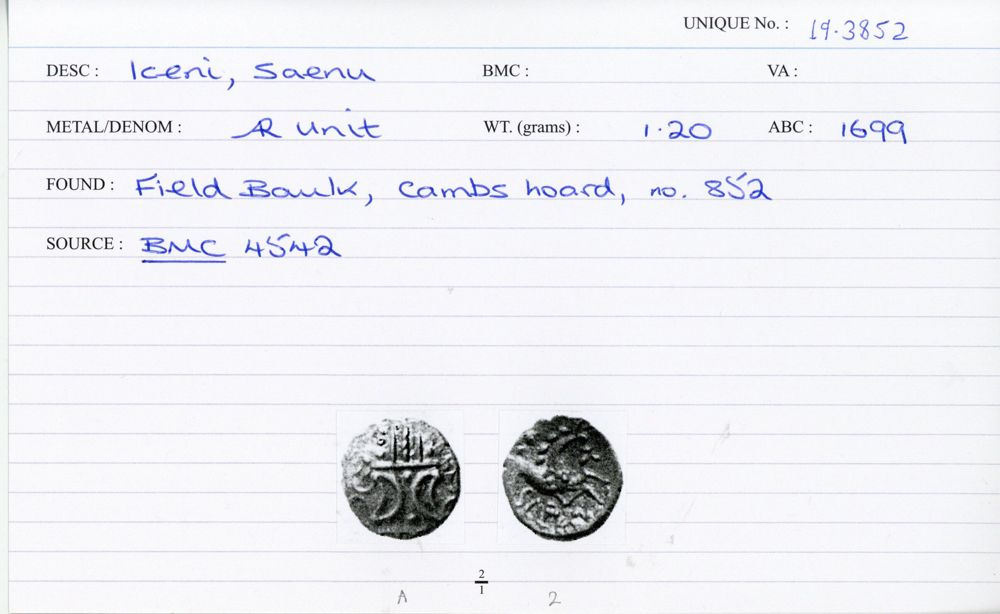 UNIQUE No. : 19.3852
DESC : Iceni, Saenu BMC : VA :
METAL/DENOM : AR unit WT. (grams) : 1.20 ABC : 1699
FOUND : Field Baulk, Cambs hoard, no. 852
SOURCE : BMC 4542
2/1
A 2